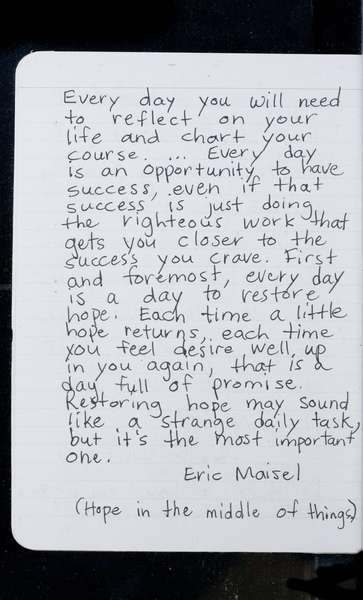 Every day you will need
to reflect on your
life and chart your
course. ... Every day
is an opportunity to have
success, even if that
success is just doing
the righteous work that
gets you closer to the
success you crave. First
and foremost, every day
is a day to restore
hope. Each time a little
hope returns, each time
you feel desire well up
in you again, that is a
day full of promise.
Restoring hope may sound
like a strange daily task,
but it's the most important
one.
Eric Maisel
(Hope in the middle of things)